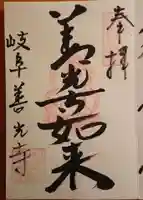 奉拝
善光寺如来
岐阜善光寺